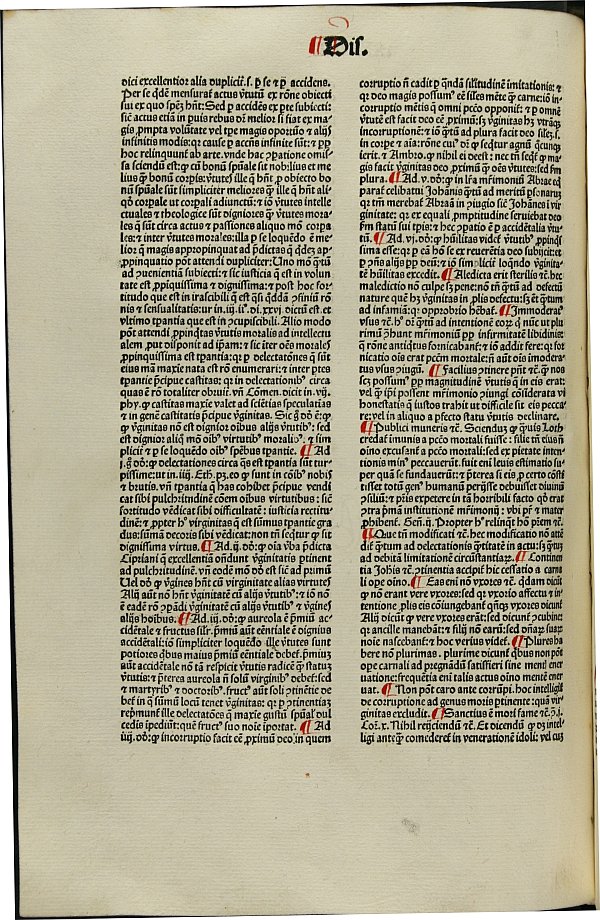 ¶ Dis.
dici excellentior alia dupliciť.s. ꝑ se ⁊ ꝑ accidens.
Per se qdē mensurať actus ṽtutū ex rōne obiecti
sui ex quo spēꝫ hñt: Sed ꝑ accidēs ex pte subiecti:
sič actus etiā in puis rebus dť melior si fiat ex ma-
gis ,pmpta volūtate vel tpe magis oportūo ⁊ alijs
infinitis modis: qꝛ cause ꝑ accñs infinite sūt: ⁊ ꝓp
hoc relinquunť ab arte. vnde hac ꝯpatione omis-
sa sciendū est: ꝙ cū bonū spūale sit nobilius et me
lius q̃ bonū corpis: ṽtutes ille q̃ hñt ,p obiecto bo
nū spūale sūt simpliciter meliores q̃ ille q̃ hñt ali-
qđ corpale ut corpali adiunctū: ⁊ iō ṽtutes intelle
ctuales ⁊ theologice sūt digniores q̃ ṽtutes mora-
les q̃ sūt circa actus ⁊ passiones aliquo mō corpa
les: ⁊ inter ṽtutes morales: illa ꝑ se loquēdo ē me-
lior q̃ magis appropinquat ad ꝓdictas
,ppinquatio pōt attendi dupliciter: Uno mō q̃tū
ad ꝓuenientiā subiecti: ⁊ sic iusticia q̃ est in volun
tate est ,ppiquissima ⁊ dignissima: ⁊ post hoc for-
titudo que est in irascibili
nis ⁊ sensualitatis: ur in .iij. li. di. xxvj. dictū est. et
vltimo tpantia que est in ꝯcupiscibili. Alio modo
pōt attendi ,ppinq̃tas ṽtutis moralis ad intellectu
alem ,put disponit ad ipam: ⁊ sic iter oēs morales
,ppinquissima est tpantia: qꝛ ꝑ delectatōnes q̃ sūt
eius mā maxie nata est rō enumerari: ⁊ inter ptes
tpantie ꝓcipue castitas: qꝛ in delectationibꝰ circa
quas ē rō totaliter obruiť. vñ Cōmen. dicit in .vij.
phy. ꝙ castitas maxie valet ad sciētias speculatias
⁊ in genē castitatis ꝓcipue ṽginitas. Sic g̃ dō ē: ꝙ
ꝙ ṽginitas nō est dignior oībus alijs ṽtutibꝰ: sed
est dignior alijs mō oībꝰ virtutibꝰ moralibꝰ. ⁊ sim
pliciť ⁊ ꝑ se loquēdo oībꝰ spēbus tpantie. ¶ Ad
j. g̃ dō: ꝙ delectationes circa q̃s est tpantia sūt tur-
pissime: ut in .iiij. Eth. pꝫ. eo ꝙ sunt in cōibꝰ nobis
⁊ brutis. vñ tpantia q̃ has cohibet ꝓcipue vendi
cat sibi pulchritudinē cōem oībus virtutibus: sič
fortitudo vēdicat sibi difficultatē: iusticia rectitu-
dinē: ⁊ ,ppter hꝰ virginitas q̃ est sūmus tpantie gra
dus: sūmā decoris sibi vēdicat: non tñ seq̃tur ꝙ sit
dignissima virtus. ¶ Ad .ij. dō: ꝙ oīa ṽba ꝓdicta
Cipriani q̃ excellentiā oñdunt ṽginitatis ptinent
ad pulchritudinē. vñ eodē mō dō est sic ad primū
Uel dō ꝙ ṽgines hñt cū virginitate alias virtutes
Alij aūt nō hñt ṽginitatē cū alijs ṽtutibꝰ: ⁊ iō nō
ē eadē rō ꝯpandi ṽginitatē cū alijs ṽtutibꝰ ⁊ ṽgines
alijs hoībus. ¶ Ad .iij. dō: ꝙ aureola ē ꝓmiū ac-
cidētale ⁊ fructus silr. ꝓmiū aūt eēntiale ē dignius
accidētali: iō simpliciter loquēdo ille ṽtutes sunt
potiores qbus maius ꝓmiū eēntiale debeť. ꝓmiuꝫ
aūt accidētale nō tā respicit ṽtutis radicē q̃ statuꝫ
ṽtutis: ⁊ ꝓterea aureola nō solū virginibꝰ debeť: sed
⁊ martyribꝰ ⁊ doctoribꝰ. fructꝰ aūt soli ꝯtinētie de
beť in q̃ sūmū locū tenet ṽginitas: qꝛ ꝑ ꝯtinentiaꝫ
repmunť ille delectatōnes q̃ maxie gustū spūaleꝫ dul
cedīs īpediūt: que fructꝰ suo noīe īportat. ¶ Ad
iiij. dō: ꝙ incorruptio facit eē ,pximū deo in quem
corruptio ñ cadit ꝑ qndā silitudinē imitationis: ⁊
qꝛ deo magis possumꝰ eē siles mēte q̃ carne: iō in-
corruptio mētis q̃ omni pctō opponiť: ⁊ ꝑ omnē
ṽtutē est facit deo eē ,pximū: sꝫ ṽginitas hꝫ vtrāqꝫ
incorruptionē: ⁊ iō q̃tū ad plura facit deo silez. s.
in corpe ⁊ aīa: rōne cuiꝰ dť ꝙ seq̃tur agnū q̃cunqꝫ
ierit. ⁊ Ambro. ꝙ nihil ei deest: nec tñ seq̃ť ꝙ ma-
gis faciť ṽginitas deo ,pximū q̃ oēs ṽtutes: sed ꝑm
plura. ¶ Ad .v. dō: ꝙ in lrā mr̄imoniū Abrae eq̃
paraf celibatui Johānis q̃tū ad meritū psonarū:
qꝛ tm̄ merebať Abraā in ꝯiugio sič Johānes ī vir
ginitate: qꝛ ex equali ,pmptitudine seruiebāt deo
ꝑm statū sui tpis: ⁊ hec ꝯpatio ē ꝑ accidētalia ṽtu-
tū. ¶ Ad .vj. dō: ꝙ hūilitas videť ṽtutibꝰ ,ppinqs
sima esse: qꝛ ꝑ eā hō se ex reuerētia deo subijcit: et
ꝑ ꝯñs alijs ꝓp deū: ⁊ iō simpliciť loqndo ṽginita-
tē hūilitas excedit. ¶ Maledicta erit sterilis ⁊c. hec
maledictio nō culpe sꝫ pene: nō tñ q̃tū ad defectū
nature quē hꝫ ṽginitas in plis defectu: sꝫ est q̃tum
ad infamiā: qꝛ opprobrio hēbať. ¶ Immoderať
vsus ⁊c. hꝰ dť q̃tū ad intentionē eorꝫ q̃ nūc ut plu
rimū ꝯhunt mr̄imoniū ꝓp infirmitatē libidinis:
q̃ rōne antiqtus fornicabanť: ⁊ iō addit fere: qꝛ for
nicatio oīs erat pctm̄ mortale: ñ aūt oīs imodera-
tus vsus ꝯiugū. ¶ Facilius ꝯtinere ptit ⁊c. q̃ nos
scꝫ possum̄ ꝓp magnitudinē ṽtutis q̃ in eis erat:
vel q̃ ipi possent mr̄imonio ꝯiungi cōsiderata vi
honestatis q̃ iustos trahit ut difficile sit eis pecca
re: vel in aliquo a pfecto statu ṽtutis declinare.
¶ Publici muneris ⁊c. Sciendū ꝙ q̃uis Loth
credať imunis a pctō mortali fuisse: silit̄ tñ eius ñ
oīno excusanť a pctō mortali: sed ex pietate inten-
tionis minꝰ peccauerūt. fuit enī leuis estimatio su-
per qua se fundauerūt: ⁊ ꝓterea si eis ꝑ certo cōsti
tisset totū genꝰ humanū perijsse debuisset diuinū
ꝯsiliū: ⁊ pr̄is expetere in tā horribili facto qđ erat
ꝯtra ꝓmā institutionē mr̄imonij: vbi pr̄ ⁊ mater
,phibenť. Geñ. ij. Propter hꝰ relinq̃t hō pr̄em ⁊c.
¶ Que tñ modificati ⁊c. hec modificatio nō atiē
diť q̃tum ad delectationis q̃titatē in actu: sꝫ q̃tuꝫ
ad debitā limitationē circūstantiarꝫ. ¶ Continen
tia Johīs ⁊c. ꝯtinentia accipiť hic cessatio a carna
li ope oīno. ¶ Eas enī nō vxores ⁊c. qdam dicūt
ꝙ nō erant vere vxores: sed qꝛ vxorio affectu ⁊ in-
tentione ,plis eis cōiungebanť qnqꝫ vxores dicunť
Alij dicūt ꝙ vere vxores erāt: sed dicunť ꝯcubine:
qꝛ ancille manebāt: ⁊ filij nō earū: sed dñarꝫ suarꝫ
noīe nascebanť: ⁊ hoc verius videť. ¶ Plures ha
bere nō plurimas. plurime dicunť qbus non pōt
ope carnali ad pregnādū satisfieri sine menť ener
uatione: frequētia enī talis actus oīno mētē ener
uat. ¶ Non pōt caro ante corrūpi. hoc intelligiť
de corruptione ad genus moris ptinente: quā vir
ginitas excludit. ¶ Sanctius ē mori fame ⁊c. ꝯ.j.
Coꝛ. x. Nihil reijciendū ⁊c. Et dicendū ꝙ dꝫ intel-
ligi anteq̃ comedereť in venerationē idoli: vel cuꝫ